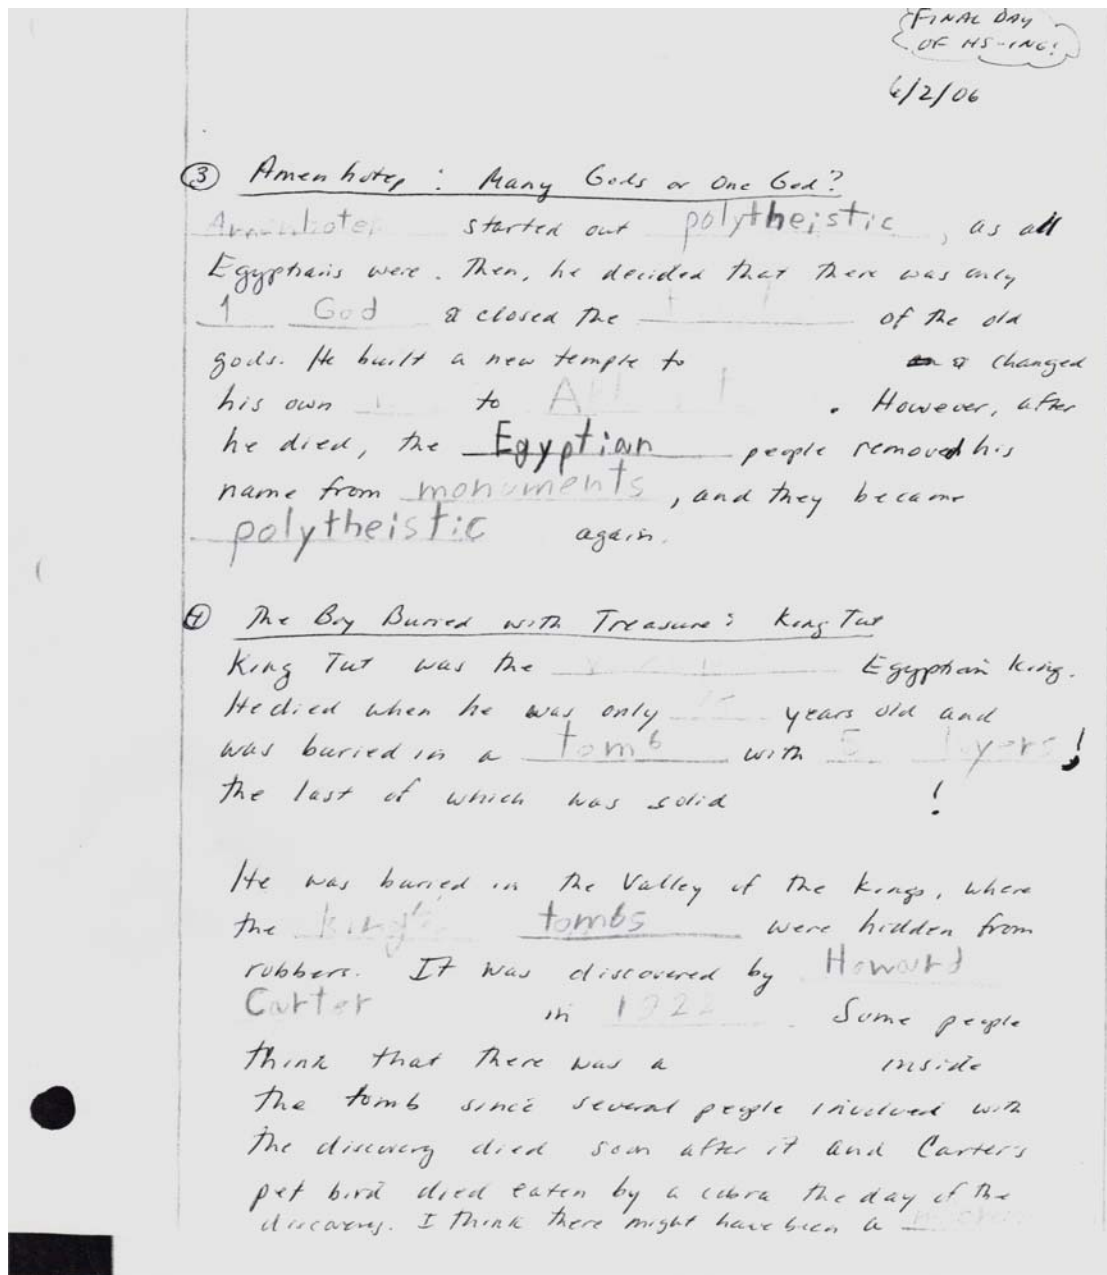 FINAL DAY
OF HS-ING!
6/2/06
③ Amenhotep : Many Gods or One God?
Amenhotep started out polytheistic , as all
Egyptians were. Then, he decided that there was only
1 God & closed the of the old
gods. He built a new temple to & changed
his own to . However, after
he died, the Egyptian people removed his
name from monuments , and they became
polytheistic again.
④ The Boy Buried with Treasure: King Tut
King Tut was the Egyptian king.
He died when he was only years old and
was buried in a tomb with 5 layers!
the last of which was solid !
He was buried in the Valley of the Kings, where
the king's tombs were hidden from
robbers. It was discovered by Howard
Carter in 1922 . Some people
think that there was a inside
the tomb since several people involved with
the discovery died soon after it and Carter's
pet bird died eaten by a cobra the day of the
discovery. I think there might have been a